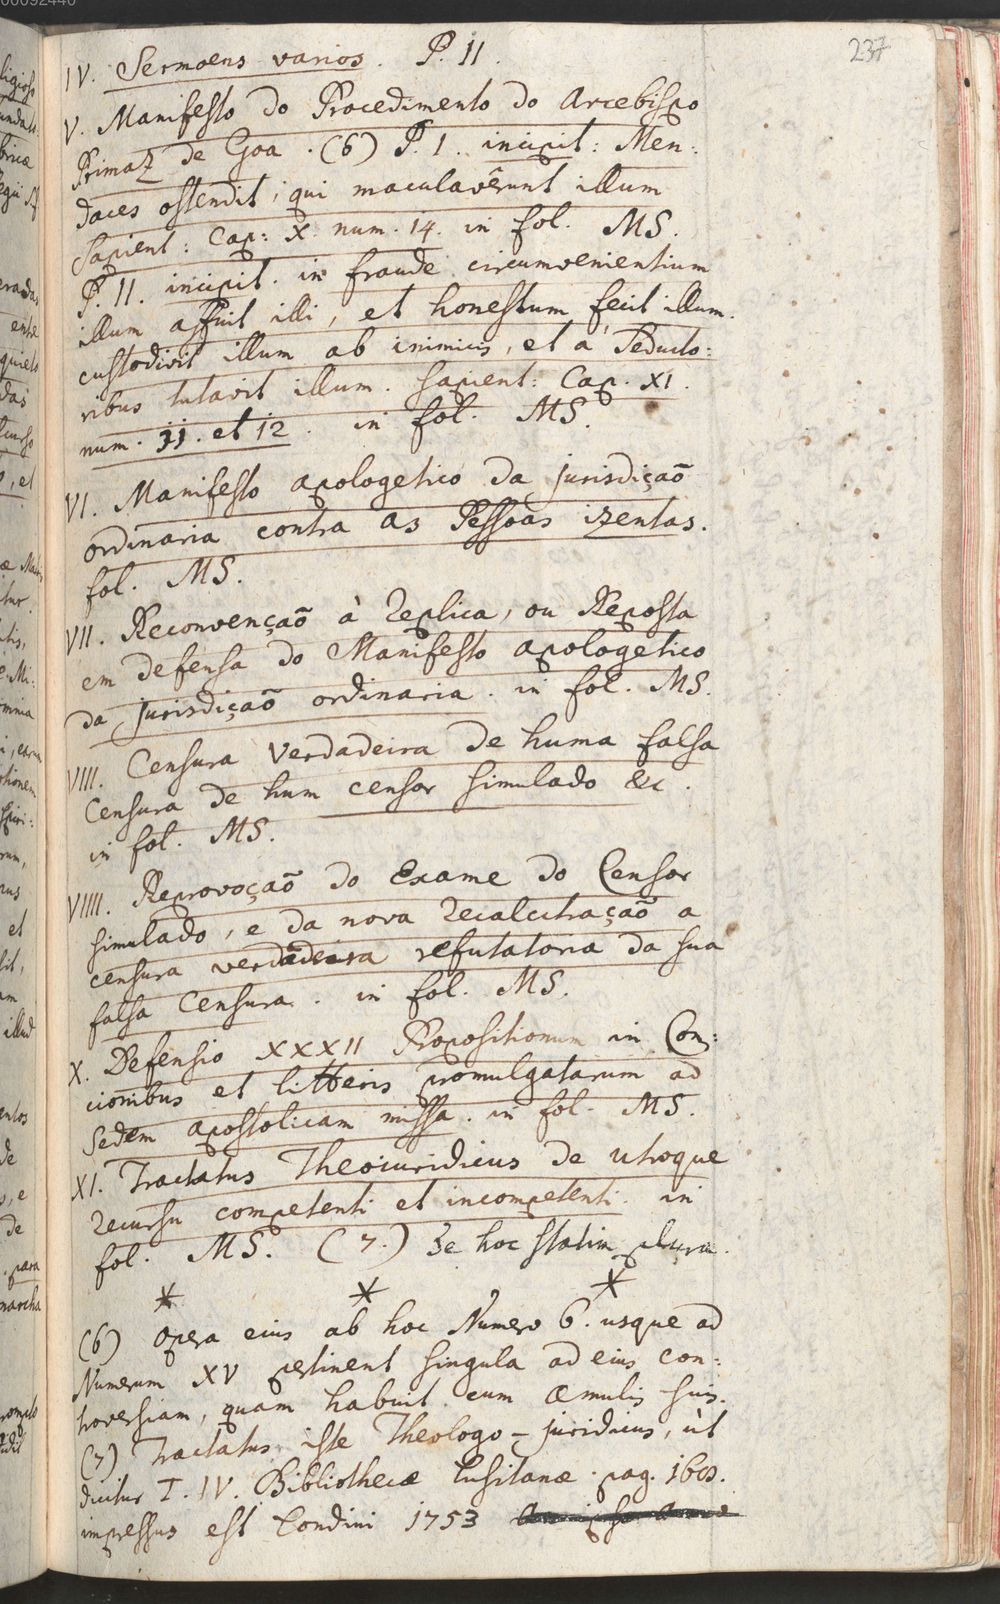 237
IV. Sermoens varios. P. II.
V. Manifesto do Procedimento do Arcebispo
Primaz de Goa. (6) P. I. incipit: Men:
daces ostendit, qui maculavêrunt illum
Sapient: Cap: X. num. 14. in fol. MS.
P. II. incipit. in fraude circumvenientium
illum affuit illi, et honestum fecit illum.
custodivit illum ab inimicis, et à Seducto:
ribus tutavit illum. Sapient: Cap. XI.
num. 11. et 12. in fol. MS.
VI. Manifesto apologetico da jurisdiçaõ
ordinaria contra as Pessoas izentas.
fol. MS.
VII. Reconvençaõ à Replica, ou Reposta
em defensa do Manifesto apologetico
da jurisdiçaõ ordinaria. in fol. MS.
VIII. Censura verdadeira de huma falsa
Censura de hum censor simulado &c.
in fol. MS.
VIIII. Reprovoçaõ do Exame do Censor
simulado, e da nova recalcitraçaõ a
censura verdadeira refutatoria da sua
falsa Censura. in fol. MS.
X. Defensio XXXII Propositionum in Con:
cionibus et litteris promulgatarum ad
Sedem apostolicam missa. in fol. MS.
XI. Tractatus Theoiuridicus de utroque
recursu competenti et incompetenti. in
fol. MS. (7.) de hoc statim plura.
* * *
(6) opera eius ab hoc Numero 6. usque ad
Numerum XV pertinent singula ad eius con:
troversiam, quam habuit cum æmulis suis.
(7) Tractatus iste Theologo-juridicus, ùt
dicitur T. IV. Bibliothecæ Lusitanæ. pag.
impressus est Londini 1753